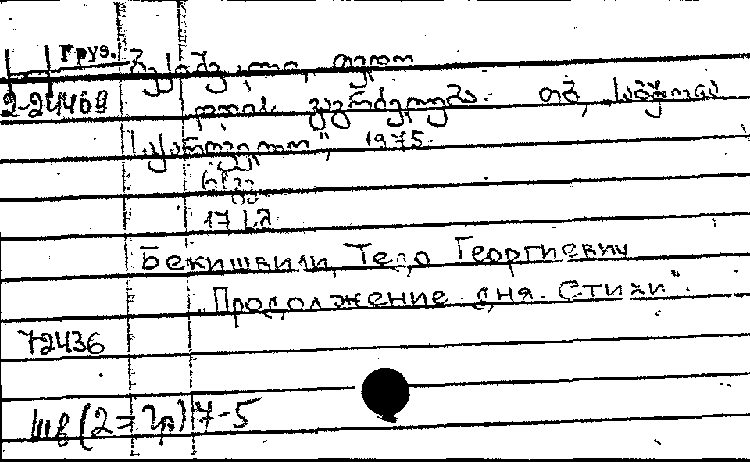 Груз.
2-24469
დღის გაგრძელება. თბ. „საბჭოთა
საქართველო“, 1975.
17 სმ.
Бекишвили, Тело Георгиевич
„Продолжение дня. Стихи“.
72436
Шв(2=Гр)7-5